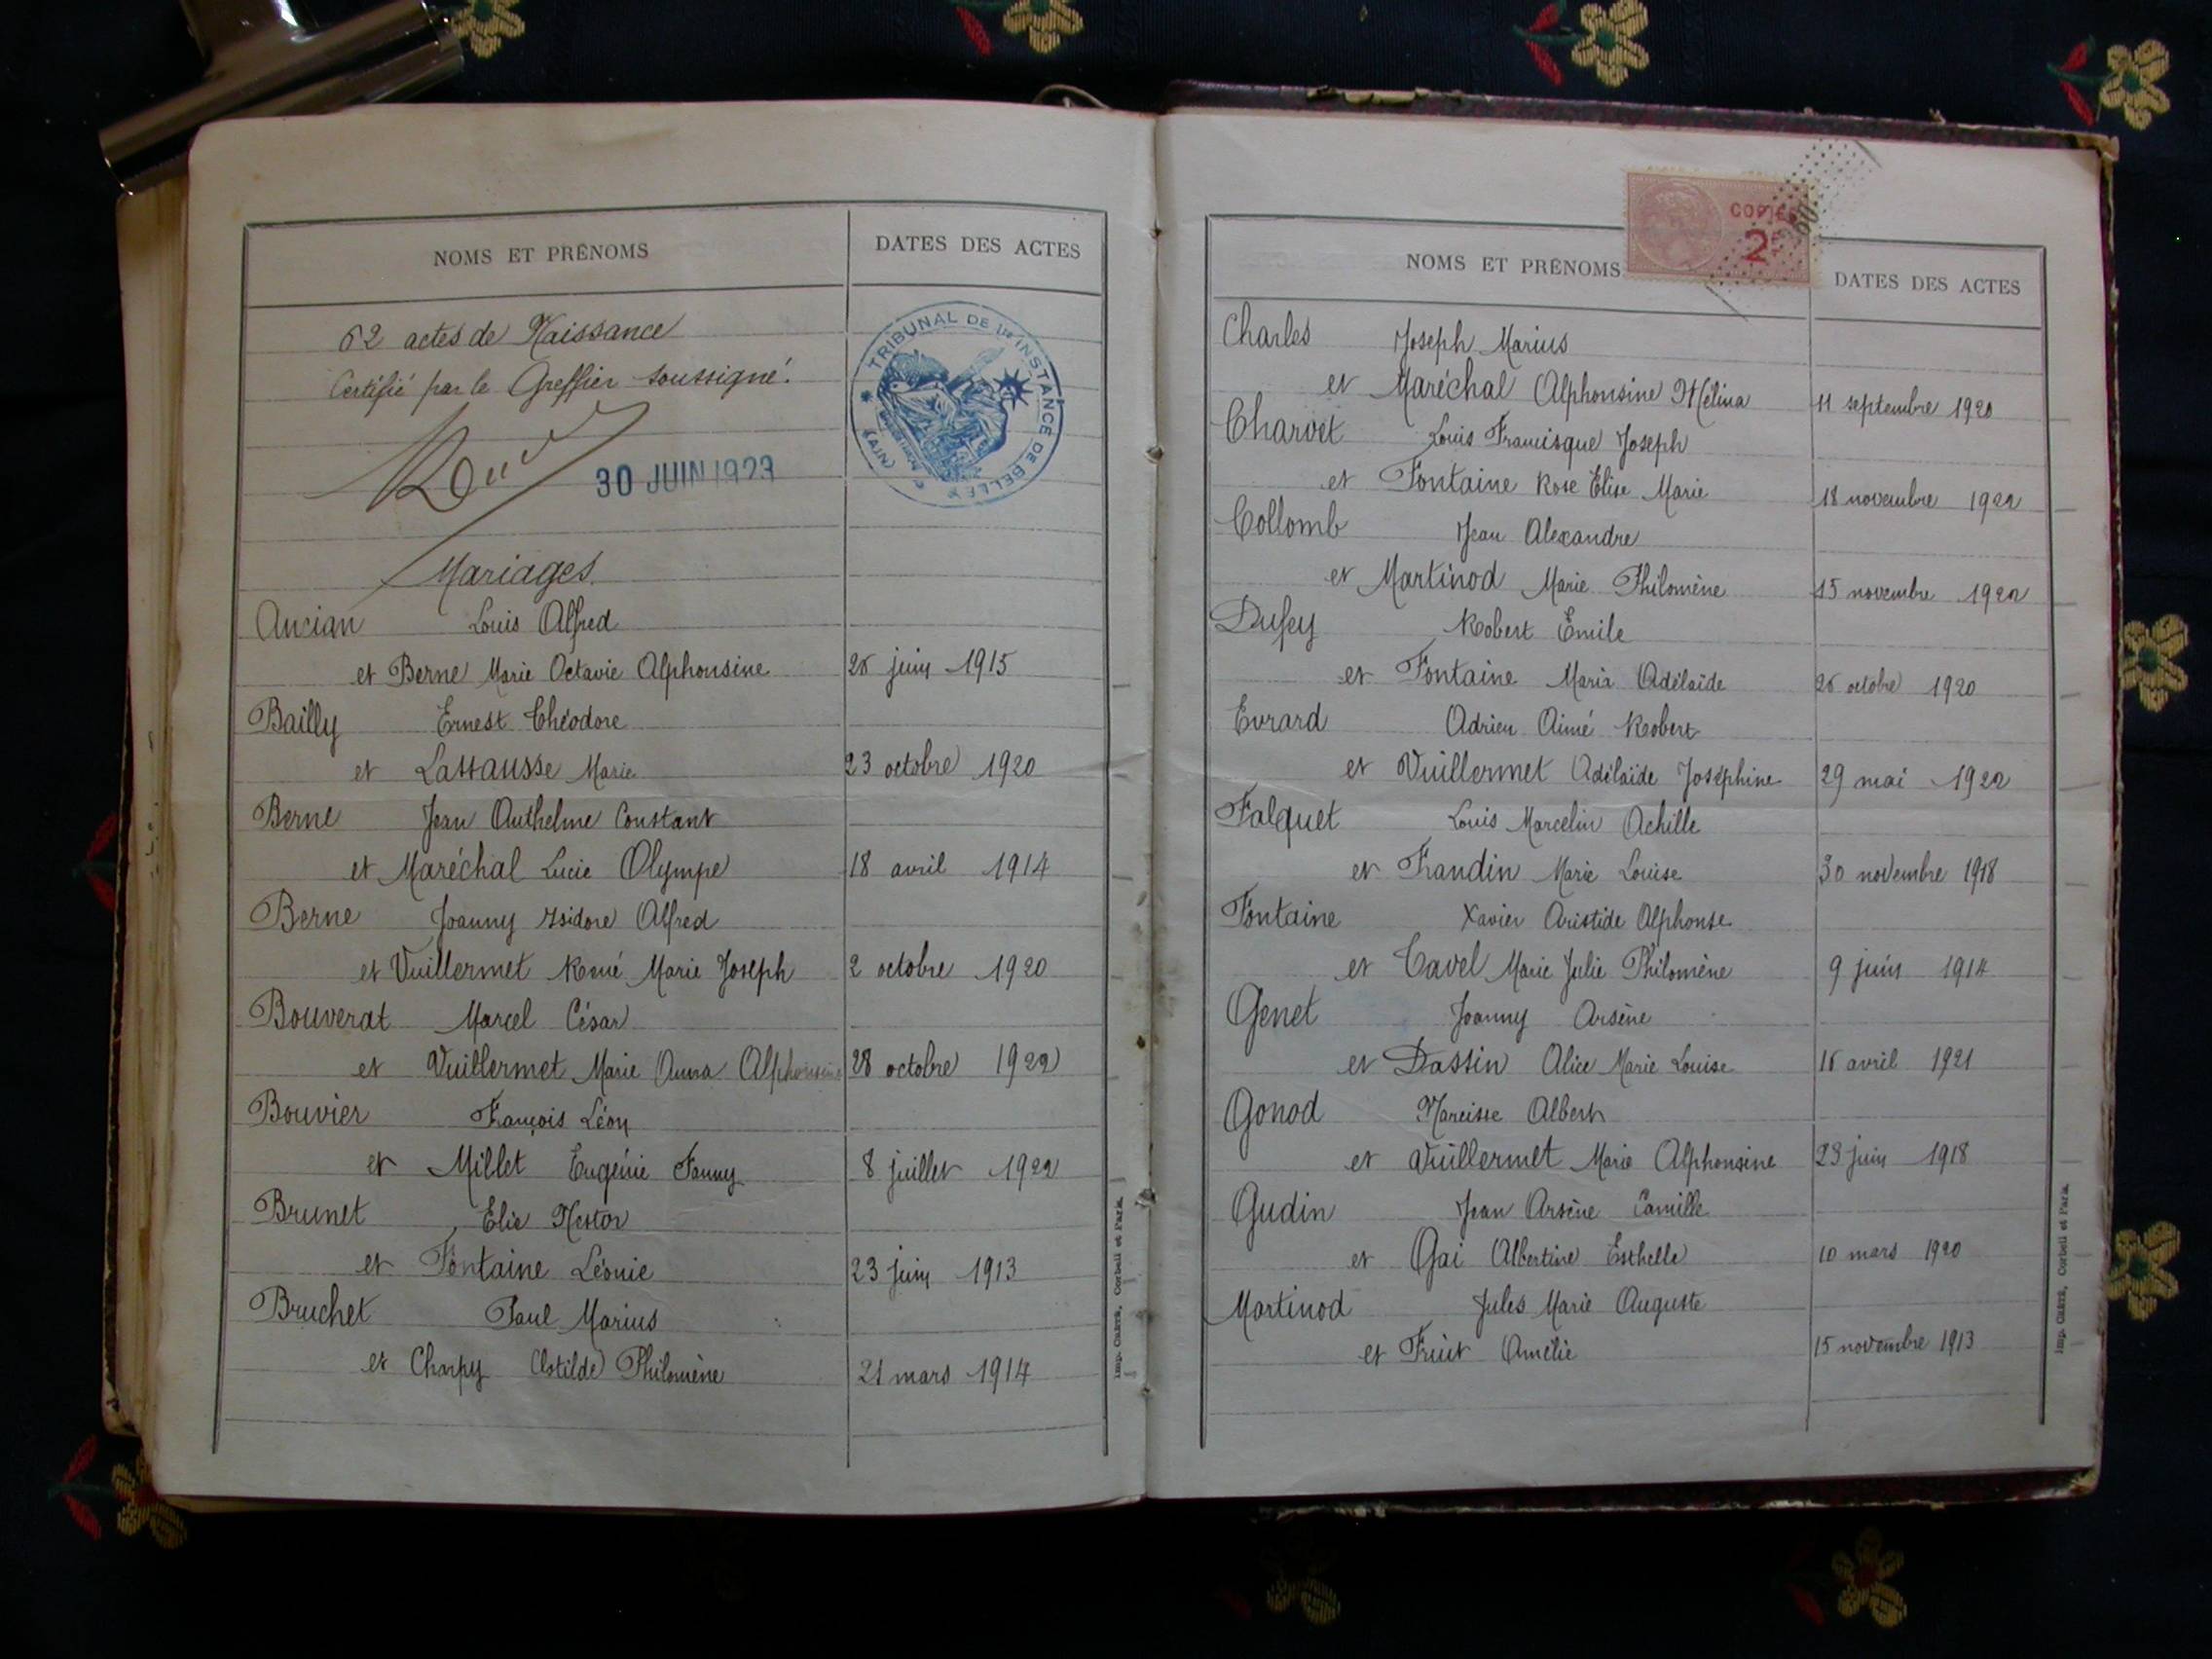 NOMS ET PRÉNOMS
DATES DES ACTES
62 actes de Naissance
Certifié par le Greffier soussigné.
30 JUIN 1923
TRIBUNAL DE 1re INSTANCE DE BELLEY (AIN)
Mariages
Ancian Louis Alfred
et Berne Marie Octavie Alphonsine 26 juin 1915
Bailly Ernest Théodore
et Lassausse Marie 23 octobre 1920
Berne Jean Anthelme Constant
et Maréchal Lucie Olympe 18 avril 1914
Berne Joanny Isidore Alfred
et Vuillermet Marie Joseph 2 octobre 1920
Bouverat Marcel César
et Vuillermet Marie Anna Alphonsine 28 octobre 1922
Bouvier François Léon
et Millet Eugénie Fanny 8 juillet 1922
Brunet Elie Nestor
et Fontaine Léonie 23 juin 1913
Bruchet Paul Marius
et Charpy Clotilde Philomène 21 mars 1914
Imp. CRÉTÉ, Corbeil et Paris.
COPIES
2F
NOMS ET PRÉNOMS
DATES DES ACTES
Charles Joseph Marius
et Maréchal Alphonsine Mélina 11 septembre 1920
Charvet Louis Francisque Joseph
et Fontaine Rose Elise Marie 18 novembre 1922
Collomb Jean Alexandre
et Martinod Marie Philomène 15 novembre 1922
Dufey Robert Emile
et Fontaine Maria Adélaïde 26 octobre 1920
Evrard Adrien Aimé Robert
et Vuillermet Adélaïde Joséphine 29 mai 1922
Falquet Louis Marcelin Achille
et Frandin Marie Louise 30 novembre 1918
Fontaine Xavier Aristide Alphonse
et Cavel Marie Julie Philomène 9 juin 1914
Genet Joanny Arsène
et Dassin Alice Marie Louise 16 avril 1921
Gonod Narcisse Albert
et Vuillermet Marie Alphonsine 23 juin 1918
Gudin Jean Arsène Camille
et Gai Albertine Esthelle 10 mars 1920
Martinod Jules Marie Auguste
et Fruit Amélie 15 novembre 1913
Imp. CRÉTÉ, Corbeil et Paris.